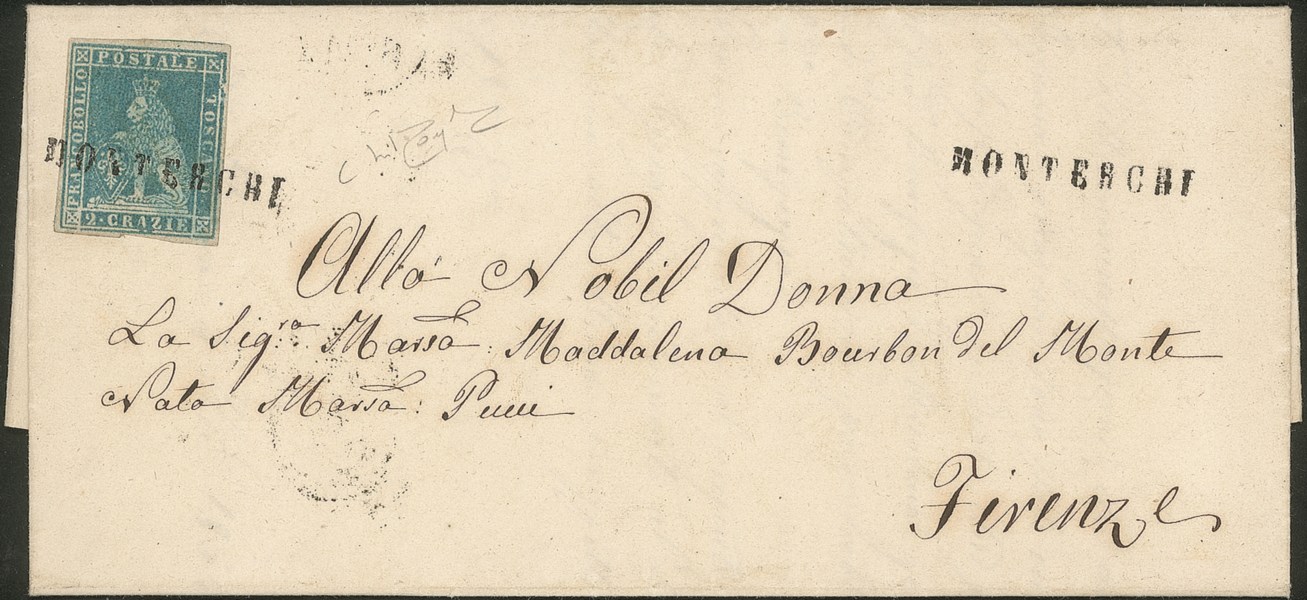 FRANCOBOLLO
POSTALE
TOSCANO
2·CRAZIE
MONTERCHI
MONTERCHI
Alla Nobil Donna
La Sigra. Marsa: Maddalena Bourbon del Monte
Nata Marsa: Pucci
Firenze